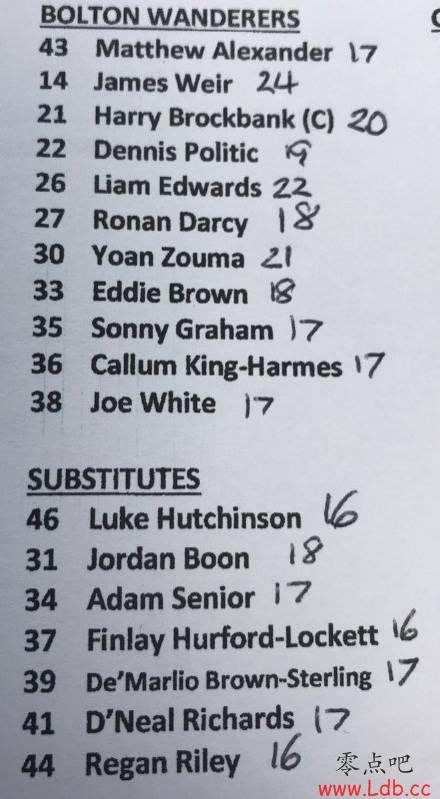 BOLTON WANDERERS
43 Matthew Alexander 17
14 James Weir 24
21 Harry Brockbank (C) 20
22 Dennis Politic 19
26 Liam Edwards 22
27 Ronan Darcy 18
30 Yoan Zouma 21
33 Eddie Brown 18
35 Sonny Graham 17
36 Callum King-Harmes 17
38 Joe White 17
SUBSTITUTES
46 Luke Hutchinson 16
31 Jordan Boon 18
34 Adam Senior 17
37 Finlay Hurford-Lockett 16
39 De'Marlio Brown-Sterling 17
41 D'Neal Richards 17
44 Regan Riley 16
零点吧
www.Ldb.cc